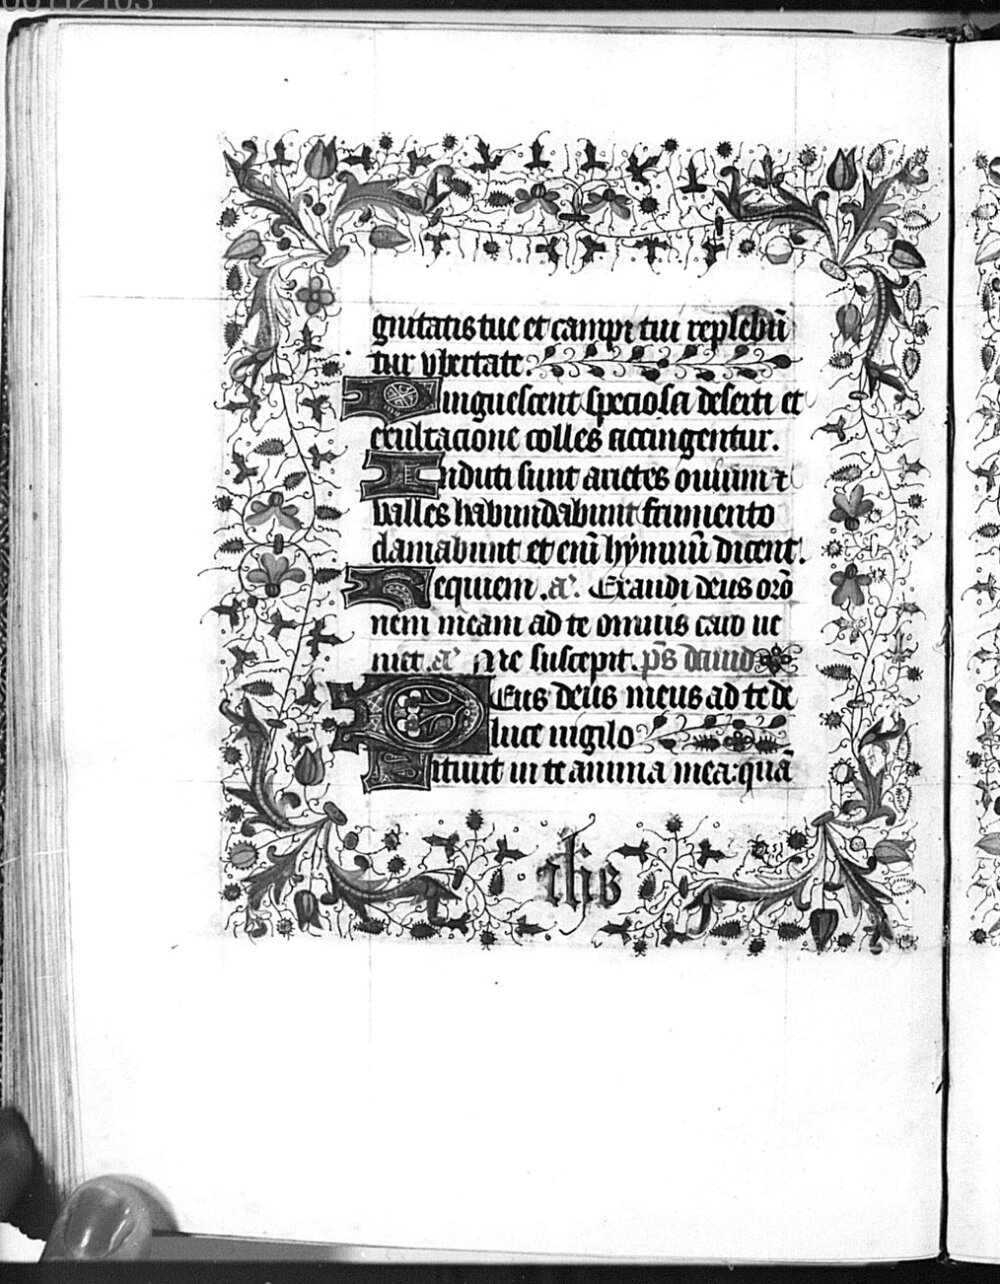 00112103
gnitatis tue et campi tui replebũ
tur vbertate.
Pinguescent speciosa deserti et
exultacione colles accingentur.
Induti sunt arietes ouium ⁊
valles habundabunt frumento
clamabunt et eniĩ hỹmnũ dicent.
Requiem .æ. Exaudi deus orõ
nem meam ad te omnis caro ue
niet .æ. Me suscepit. p̃s dauid
Deus deus meus ad te de
luce uigilo
Sitiuit in te anima mea: quã
ihs